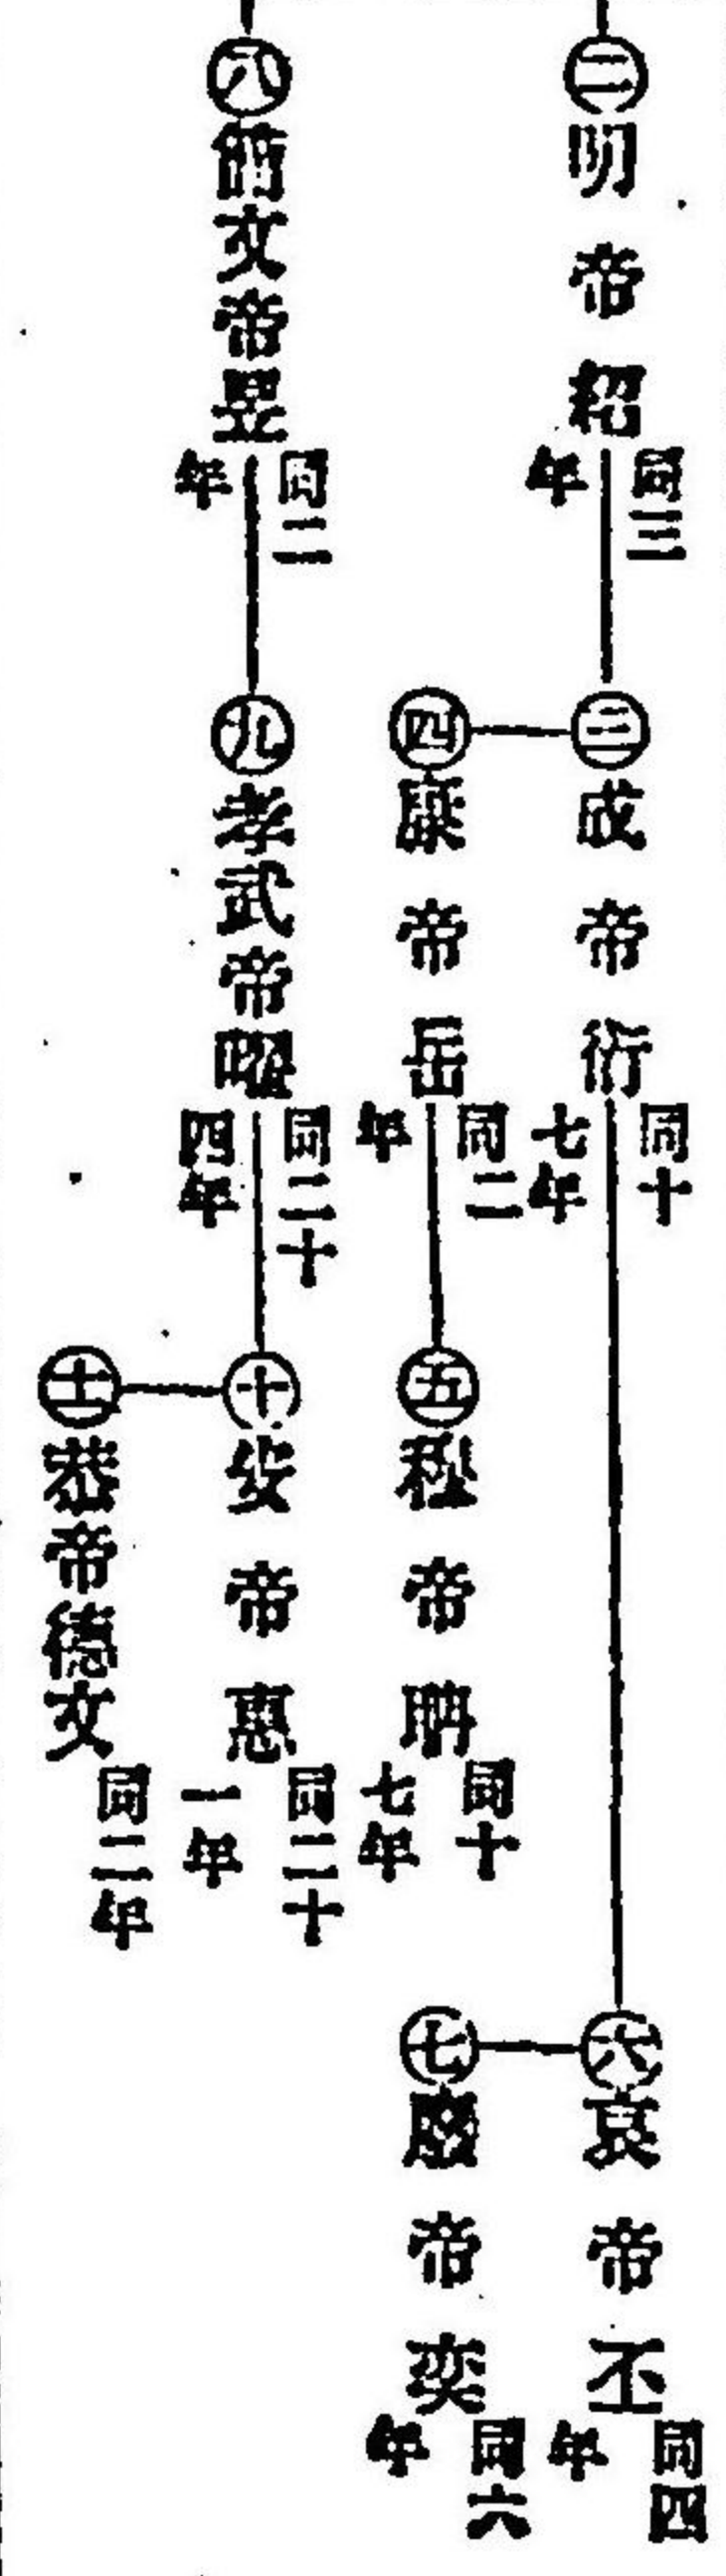 ㊁明帝紹 同三年
㊂成帝衍 同十七年
㊅哀帝丕 同四年
㊃康帝岳 同二年
㊄穆帝聃 同十七年
㊆廢帝奕 同六年
㊇簡文帝昱 同二年
㊈孝武帝曜 同二十四年
㊉安帝惠 同二十一年
十一恭帝德文 同二年